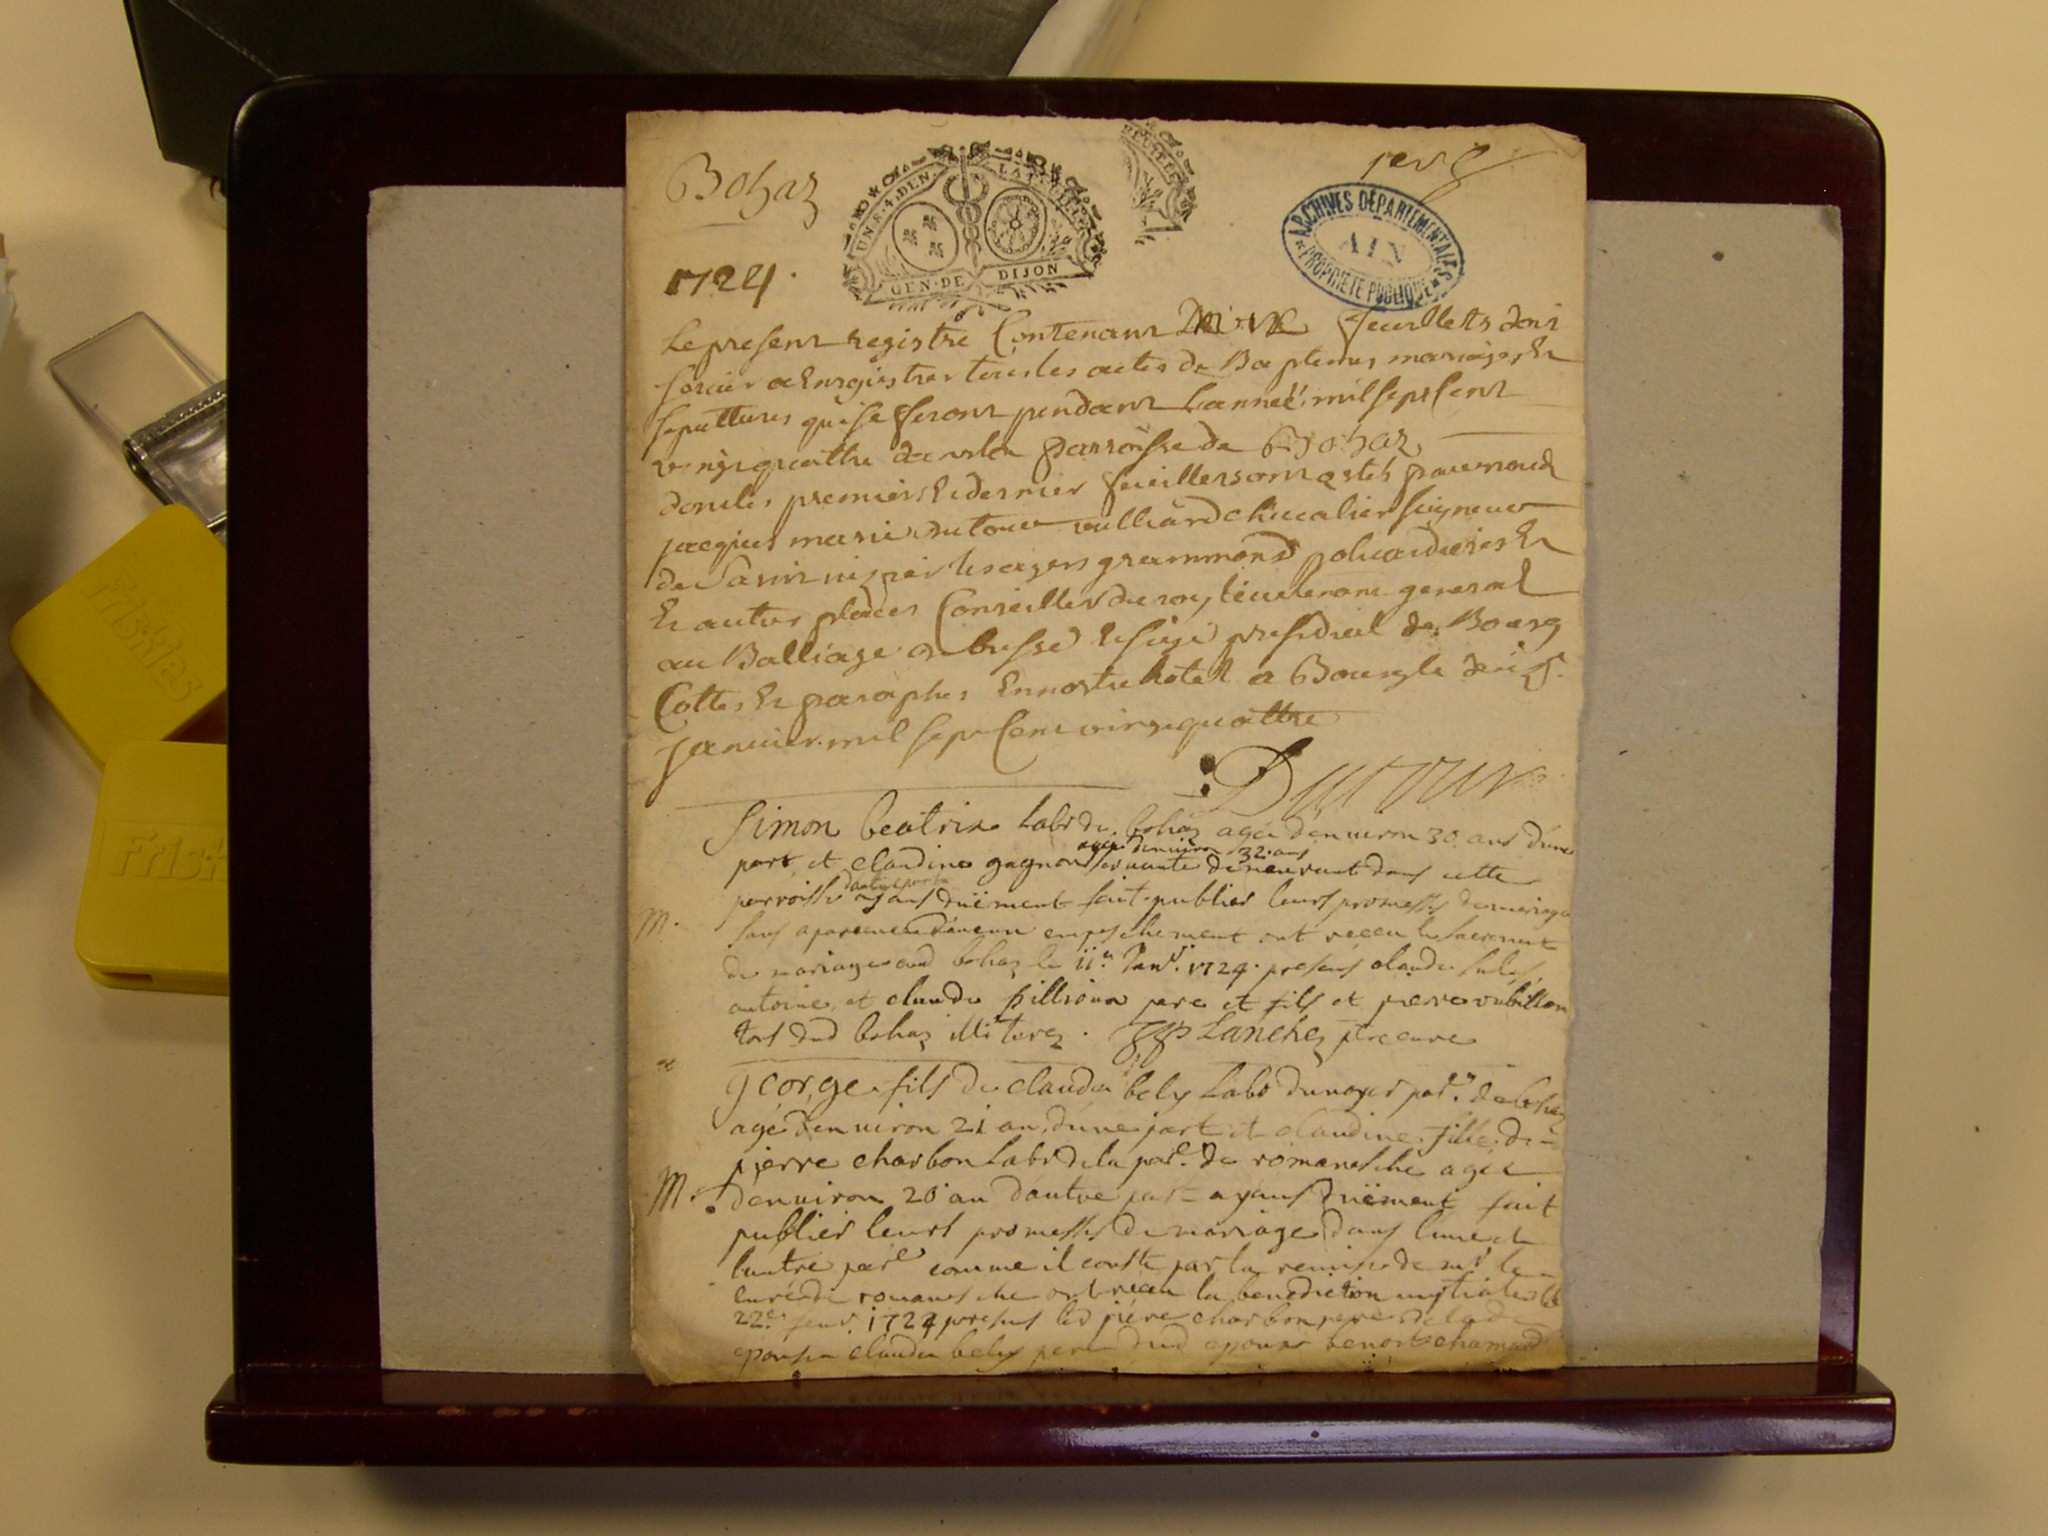 Bohaz
UN.S.4.DEN. LA FEUILLE
GEN.DE DIJON
ARCHIVES DÉPARTEMENTALES
AIN
PROPRIÉTÉ PUBLIQUE
1724.
Le present registre Contenant feuillets doit
servir a Enregistrer tous les actes de Baptemes mariages Et
sepultures qui se feront pendant Lannée mil sept Cent
vingt quattre dans la parroisse de Bohaz
dont les premier Et dernier feuillet sont par nous
jacques marie dutour vulliard Chevalier seigneur
de Saint nizier grammond Et
Et autres places Conseiller du roy lieutenant general
au Balliage de bresse Et siege presidial de Bourg
Cottes Et paraphes En nostre hotel a Bourg le
janvier mil sept Cent vingt quattre
Dutour
Simon beatrix labr de bohaz agé d'environ 30 ans d'une
agée denviron 32 ans
part, et claudine gagnon servante demeurant dans cette
dautre part
parroisse ayans düement fait publier leurs promesses de mariage
M.
sans aparence d'aucun empeschement ont receu le sacrement
de mariage aud bohaz le 11e Janv. 1724 presens claude
antoine et claude pillion pere et fils et pierre vubillon
tous dud bohaz illiterez. Lanchez ptre curé
george fils de claude bely labr du noyer par. de bohaz
agé d'environ 21 an, d'une part et claudine fille de
pierre charbon labr de la par. de romanesche agée
M.
denviron 20 an dautre part ayans düement fait
publier leurs promesses de mariage dans l'une et
lautre par. comme il conste par la remise de mr le
curé de romanesche ont receu la benediction nuptiale le
22e fevr. 1724 presens led piere charbon pere de lad
epouse claude bely pere dud epoux benoit chamard